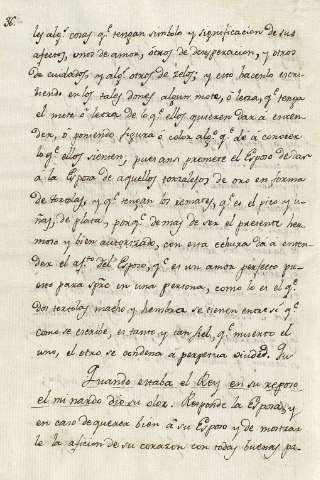 36.
les alg.s cosas q.e tengan simbolo y significacion de sus
afectos, unos de amor, otros de desesperacion, y otros
de cuidados, y alg.s otros de zelos; y esto hacenlo escri-
biendo en los tales dones algun mote, ó letra, q.e tenga
el mote ó letra de lo q.e ellos quieren dar a enten-
der, ó poniendo figura ó color alg.o q.e dé a conocer
lo q.e ellos sienten, pues ansi promete el Esposo de dar
a la Esposa de aquellos tortolejos de oro en forma
de tortolas, y q.e tengan los remates, q.e es el pico y u-
ñas, de plata, porq.e demas de ser el presente her-
moso y bien autorizado, con esta da a enten-
der el af.to del Esposo, q.e es un amor perfecto pu-
esto para spre en una persona, como lo es el q.e
dos tortolas macho y hembra se tienen entre si q.e
como se escribe, es tanto, y tan fiel, q.e muerto el
uno, el otro se condena a perpetua viuded.
Quando estaba el Rey en su reposo
el mi nardo dio su olor. Responde la Esposa, y
en caso de querer bien á su Esposo y de mostrar
le la aficion de su corazon con todas buenas pa-